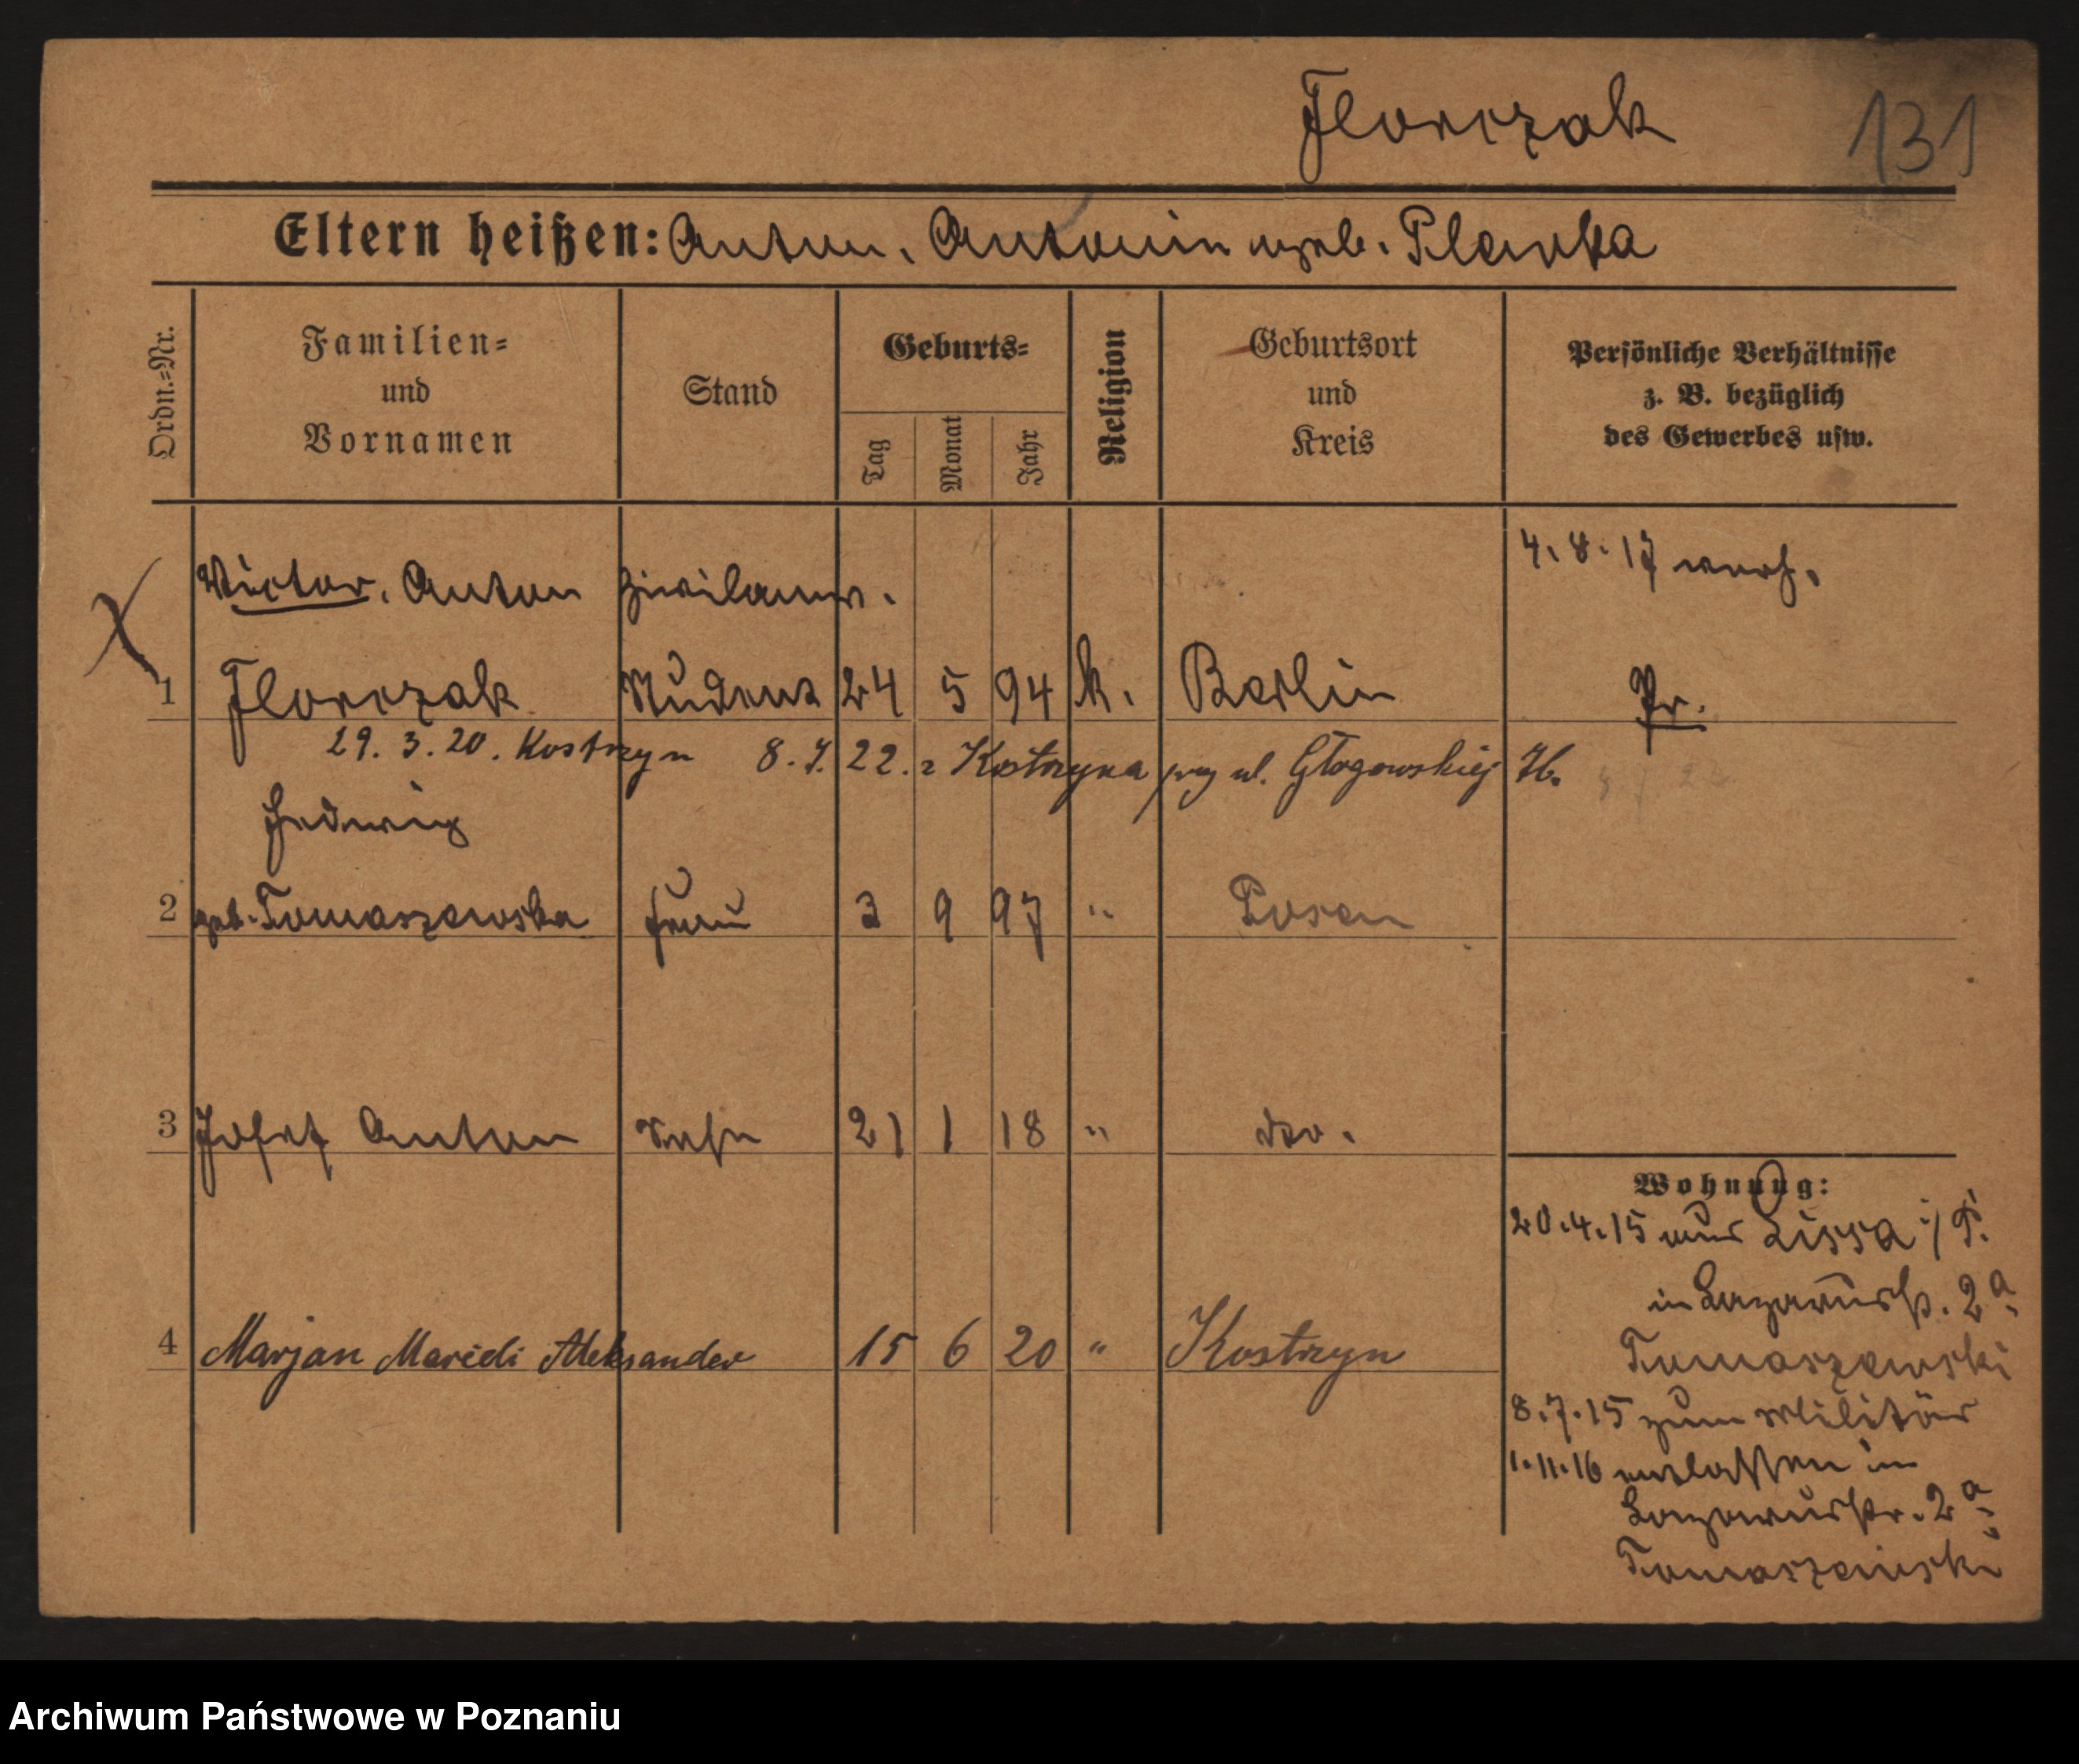 Florczak 131
Eltern heißen: Anton, Antonin geb. Planka
Ordn.=Nr.
Familien=
und
Vornamen
Stand
Geburts=
Tag
Monat
Jahr
Religion
Geburtsort
und
Kreis
Persönliche Verhältnisse
z. B. bezüglich
des Gewerbes usw.
Victor, Anton Zivilanw. 4.8.17 verh.
1 Florczak Student 24 5 94 k. Berlin Pr.
29.3.20. Kostrzyn 8.7.22. z Kostrzyna przy ul. Głogowskiej 76.
Hedwig
2 geb. Tomaszewska Frau 3 9 97 " Posen
3 Josef Anton Sohn 21 1 18 " do.
4 Marjan Aleksander 15 6 20 " Kostrzyn
Wohnung:
20.4.15 aus Lissa i/P.
in Lazarusstr. 2a
Tomaszewski
8.7.15 zum Militär
1.11.16 entlassen in
Lazarusstr. 2a
Tomaszewski
Archiwum Państwowe w Poznaniu